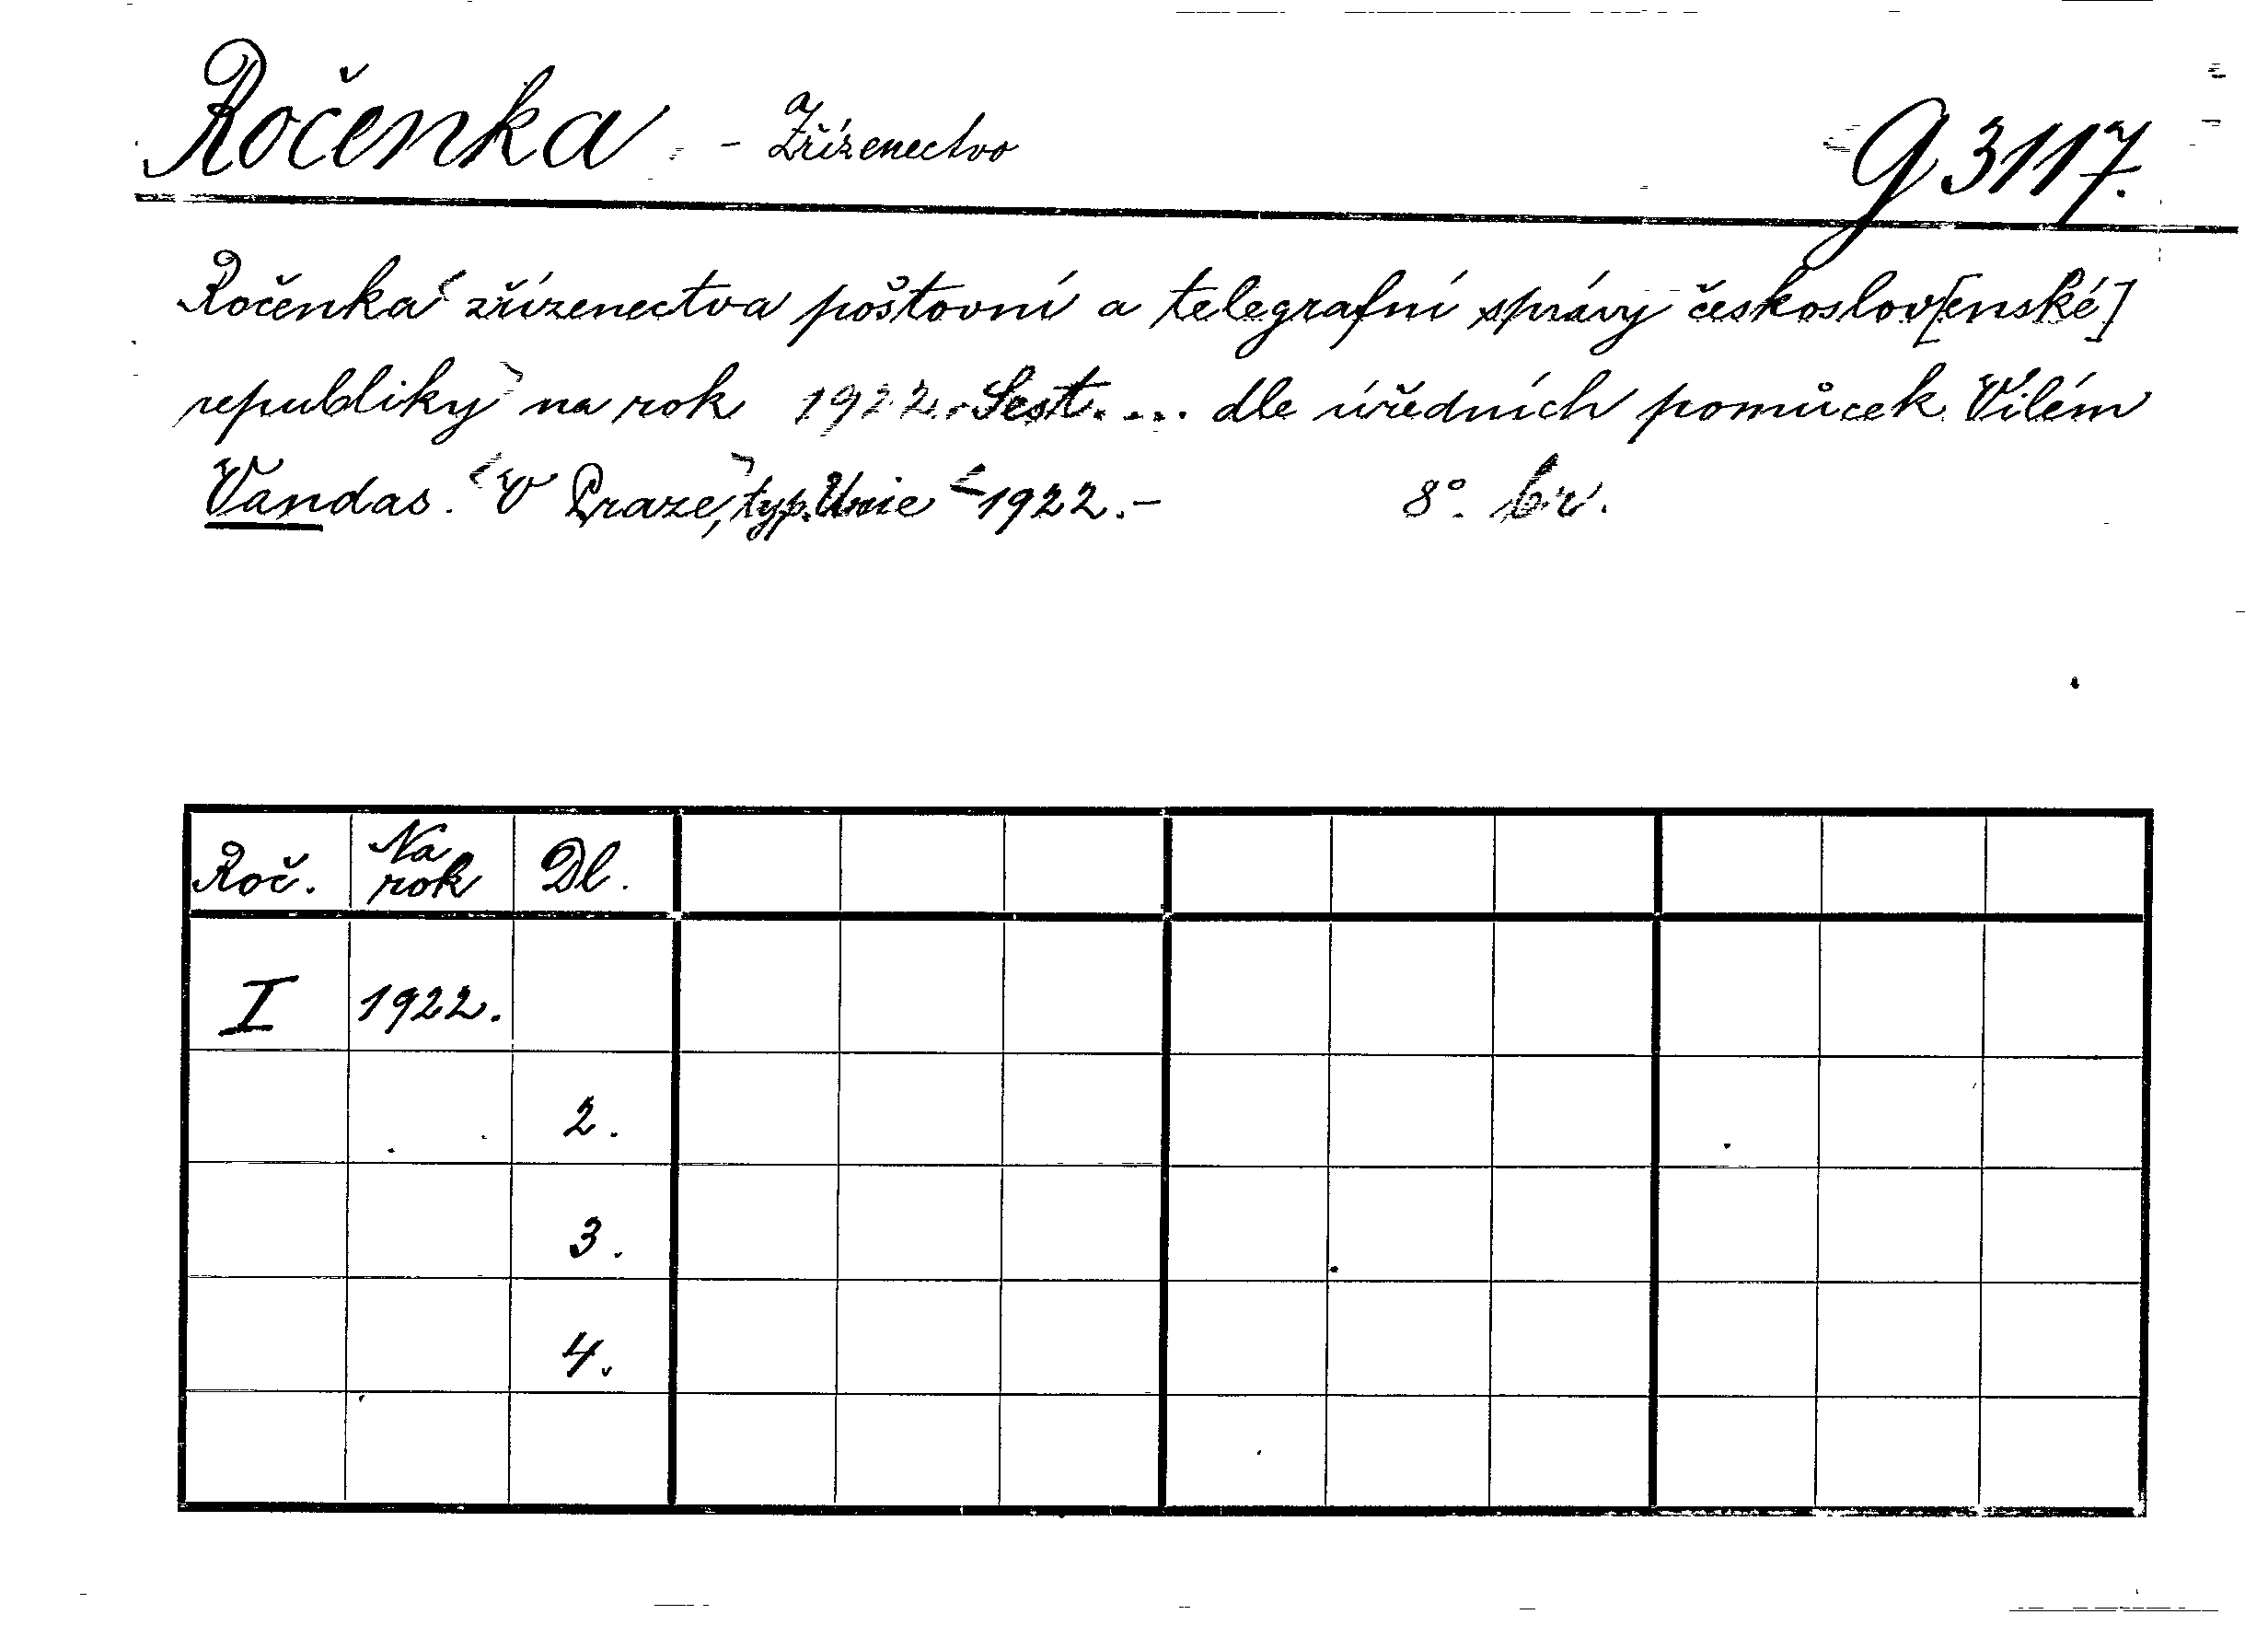 Ročenka - Zřízenectvo G 3117.
Ročenka zřízenectva poštovní a telegrafní správy českoslov[enské]
republiky na rok 1922. Sest. ... dle úředních pomůcek Vilém
Vandas. V Praze, typ. Unie 1922.- 8°. br.
Roč. Na rok Dl.
I 1922.
2.
3.
4.